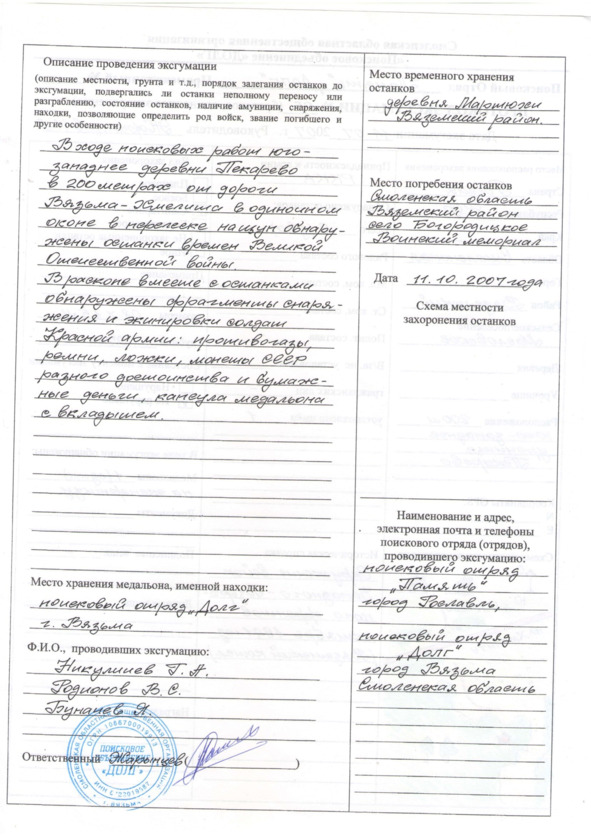 Описание проведения эксгумации
(описание местности, грунта и т.д., порядок залегания останков до
эксгумации, подвергались ли останки неполному переносу или
разграблению, состояние останков, наличие амуниции, снаряжения,
находки, позволяющие определить род войск, звание погибшего и
другие особенности)
В ходе поисковых работ юго-
западнее деревни Пекарево
в 200 метрах от дороги
Вязьма-Хмелита в одиночном
окопе в перелеске на щуп обнару-
жены останки времен Великой
Отечественной войны.
В расколе вместе с останками
обнаружены фрагменты снаря-
жения и экипировки солдат
Красной армии: противогазы,
ремни, ложки, монеты СССР
разного достоинства и бумаж-
ные деньги, капсула медальона
с вкладышем.
Место хранения медальона, именной находки:
поисковый отряд „Долг"
г. Вязьма
Ф.И.О., проводивших эксгумацию:
Никулишев Г.А.
Родионов В.С.
Бунаев Я.
Ответственный Жарынцев ( )
ПОИСКОВОЕ
ОБЪЕДИНЕНИЕ
«ДОЛГ»
Место временного хранения
останков
деревня Мартюхи
Вяземский район.
Место погребения останков
Смоленская область
Вяземский район
село Богородицкое
Воинский мемориал
Дата 11.10.2007 года
Схема местности
захоронения останков
Наименование и адрес,
электронная почта и телефоны
поискового отряда (отрядов),
проводившего эксгумацию:
поисковый отряд
„Память"
город Рославль,
поисковый отряд
„Долг"
город Вязьма
Смоленская область